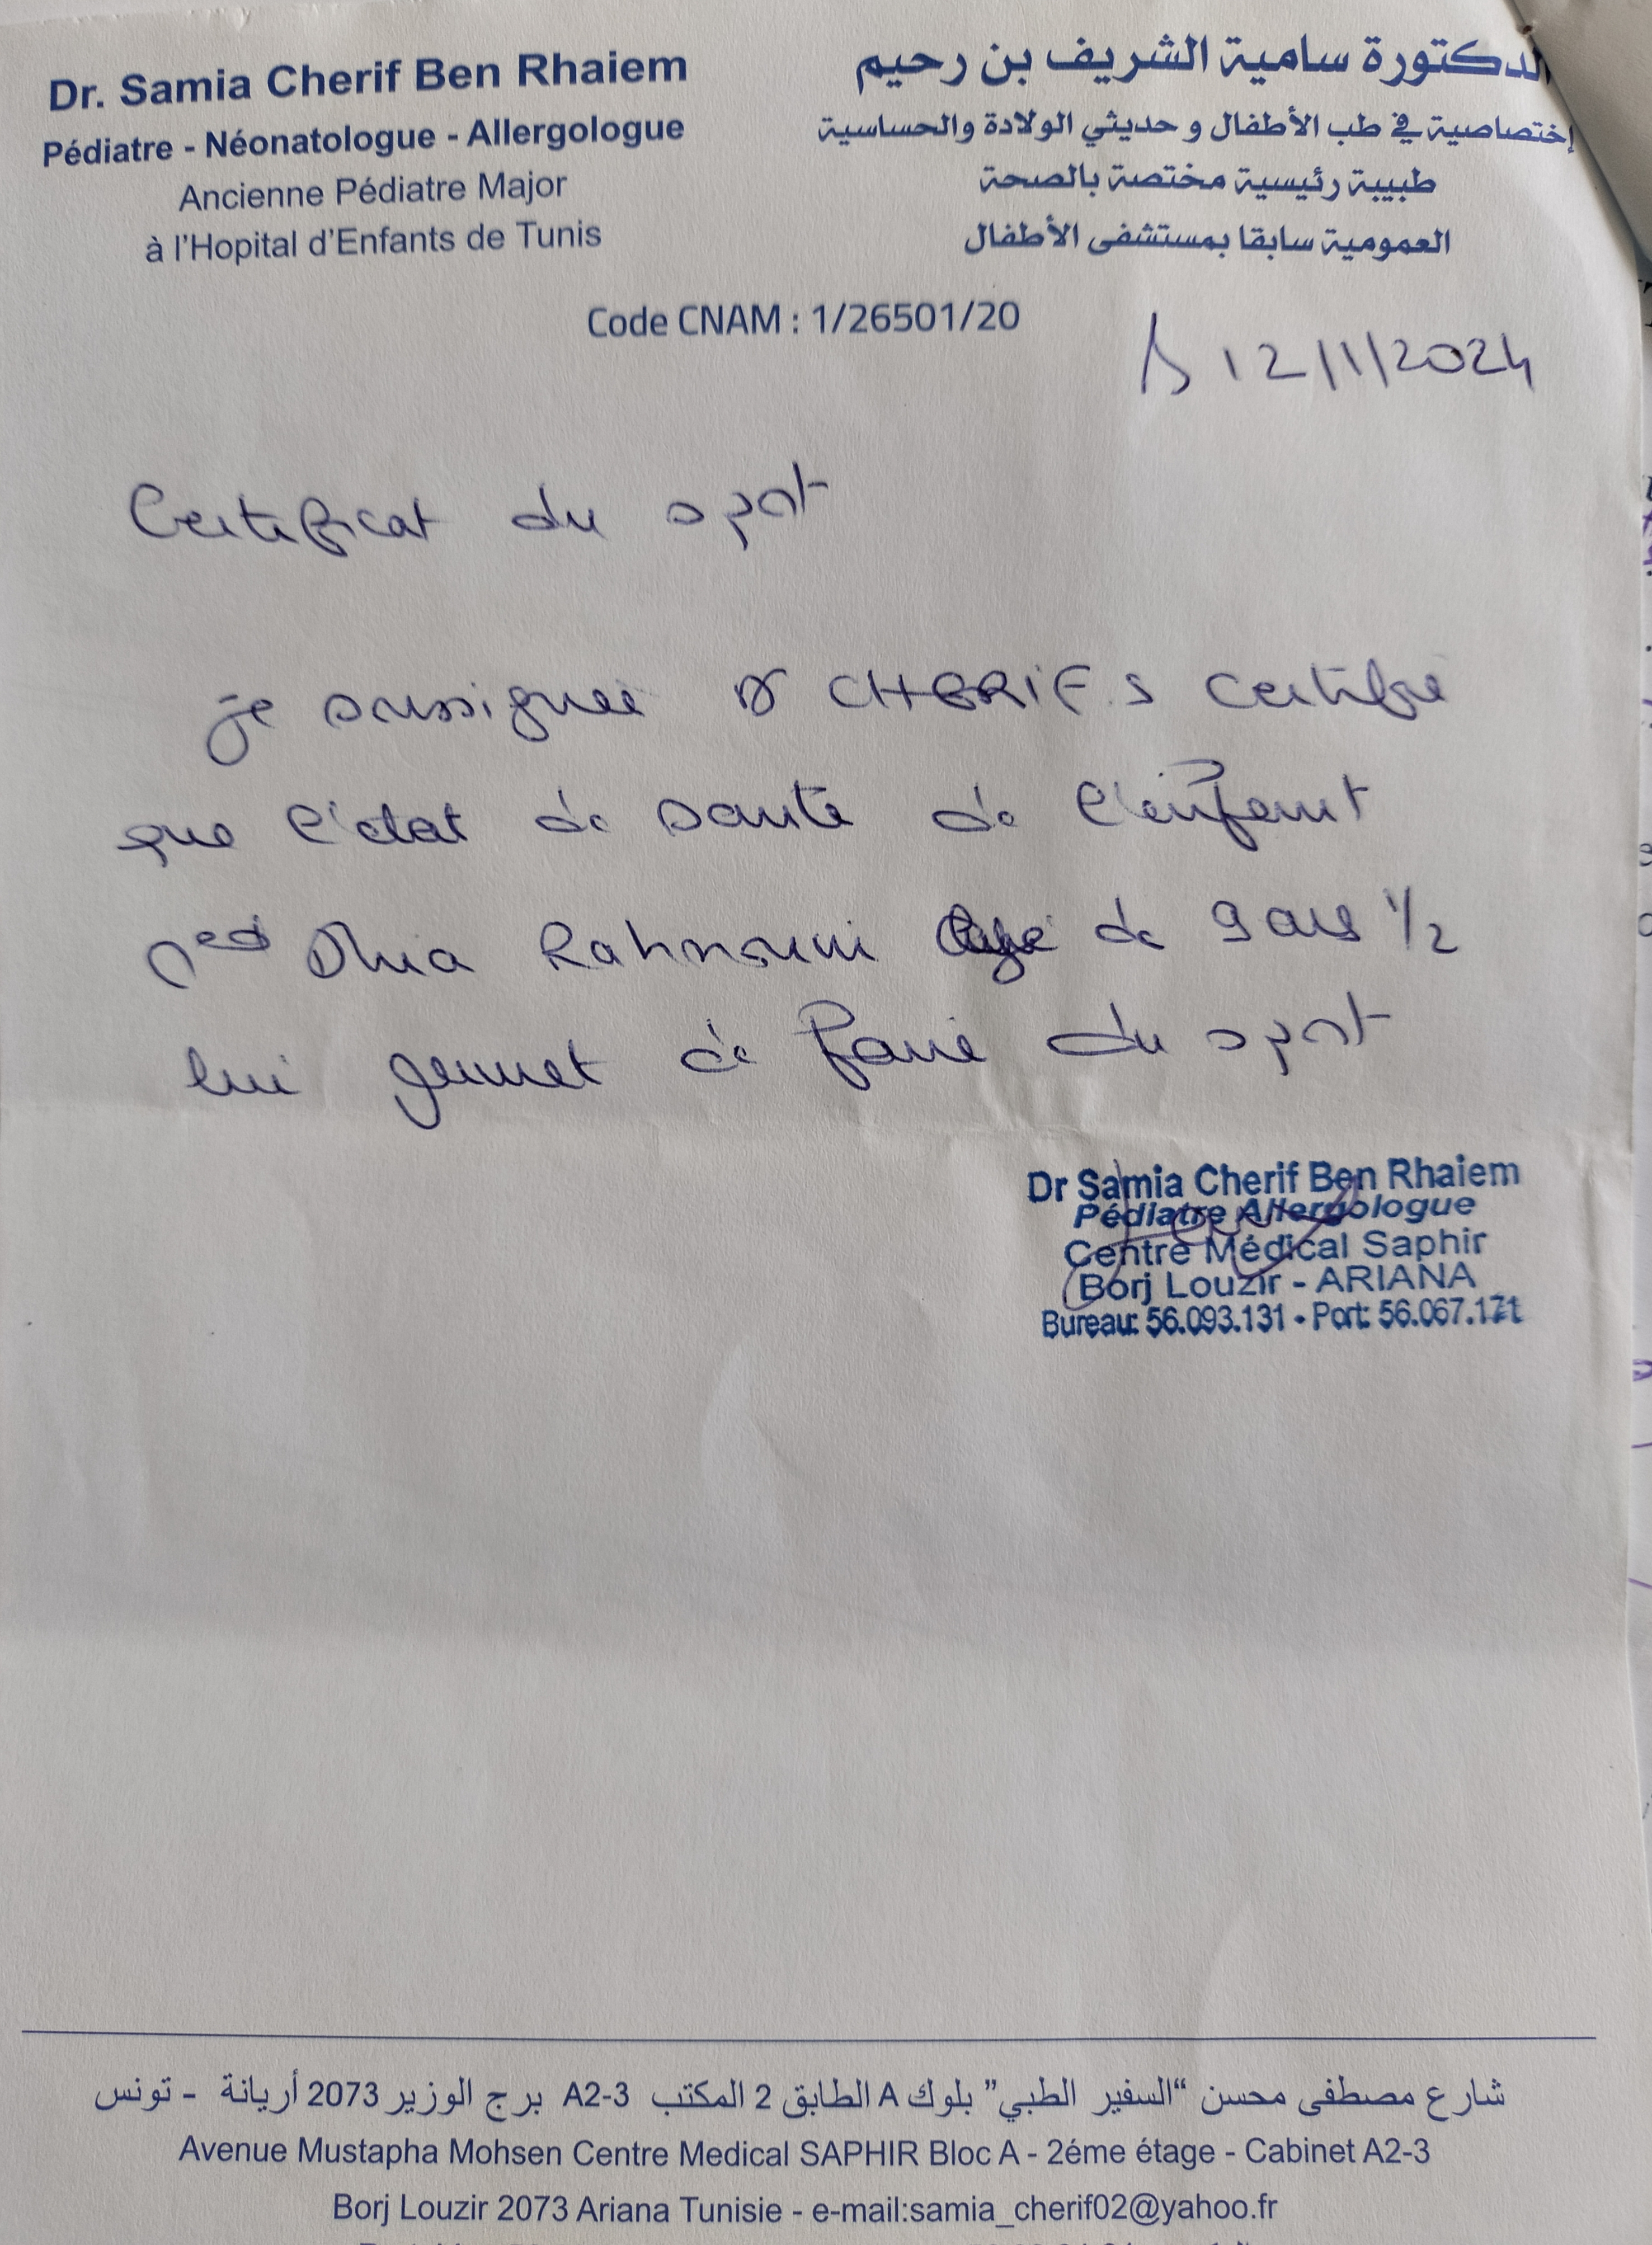 Dr. Samia Cherif Ben Rhaiem
Pédiatre - Néonatologue - Allergologue
Ancienne Pédiatre Major
à l'Hopital d'Enfants de Tunis
الدكتورة سامية الشريف بن رحيم
إختصاصية في طب الأطفال و حديثي الولادة والحساسية
طبيبة رئيسية مختصة بالصحة
العمومية سابقا بمستشفى الأطفال
Code CNAM : 1/26501/20
12/1/2024
Certificat du sport
je soussignée Dr CHERIF.S certifie
que l'état de santé de l'enfant
Med Dhia Rahmouni agé de 9 ans 1/2
lui permet de faire du sport
Dr Samia Cherif Ben Rhaiem
Pédiatre Allergologue
Centre Médical Saphir
Borj Louzir - ARIANA
Bureau: 56.093.131 - Port: 56.067.171
شارع مصطفى محسن “السفير الطبي” بلوك A الطابق 2 المكتب A2-3 برج الوزير 2073 أريانة - تونس
Avenue Mustapha Mohsen Centre Medical SAPHIR Bloc A - 2éme étage - Cabinet A2-3
Borj Louzir 2073 Ariana Tunisie - e-mail:samia_cherif02@yahoo.fr